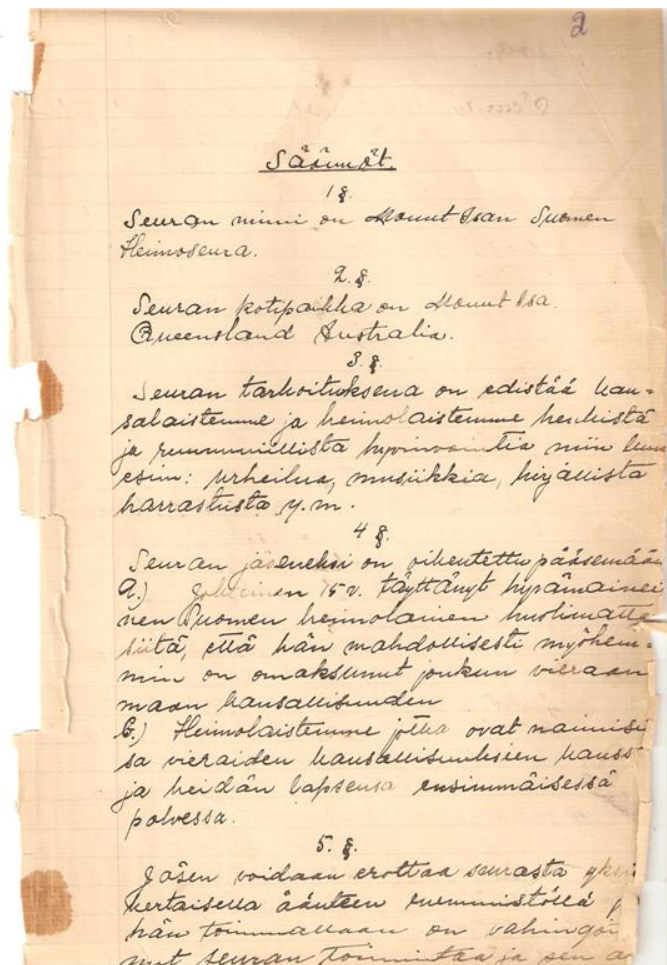 2
Säännöt.
1 §.
Seuran nimi on Mount Isan Suomen
Heimoseura.
2. §.
Seuran kotipaikka on Mount Isa.
Queensland Australia.
3. §.
Seuran tarkoituksena on edistää kan=
salaistemme ja heimolaistemme henkistä
ja ruumiillista hyvinvointia niin kuin
esim: urheilua, musiikkia, kirjallista
harrastusta y.m.
4 §.
Seuran jäseneksi on oikeutettu pääsemään
a.) 15 v. täyttänyt hyvämainei
nen Suomen heimolainen huolimatta
siitä, että hän mahdollisesti myöhem=
min on omaksunut jonkun vieraan
maan kansallisuuden
b.) Heimolaistemme jotka ovat naimisi
sa vieraiden kansallisuuksien kanss
ja heidän lapsensa ensimmäisessä
polvessa.
5. §.
Jäsen voidaan erottaa seurasta yksin
kertaisella äänten enemmistöllä j
hän toiminnallaan on vahingoi
nut seuran toimintaa ja sen a